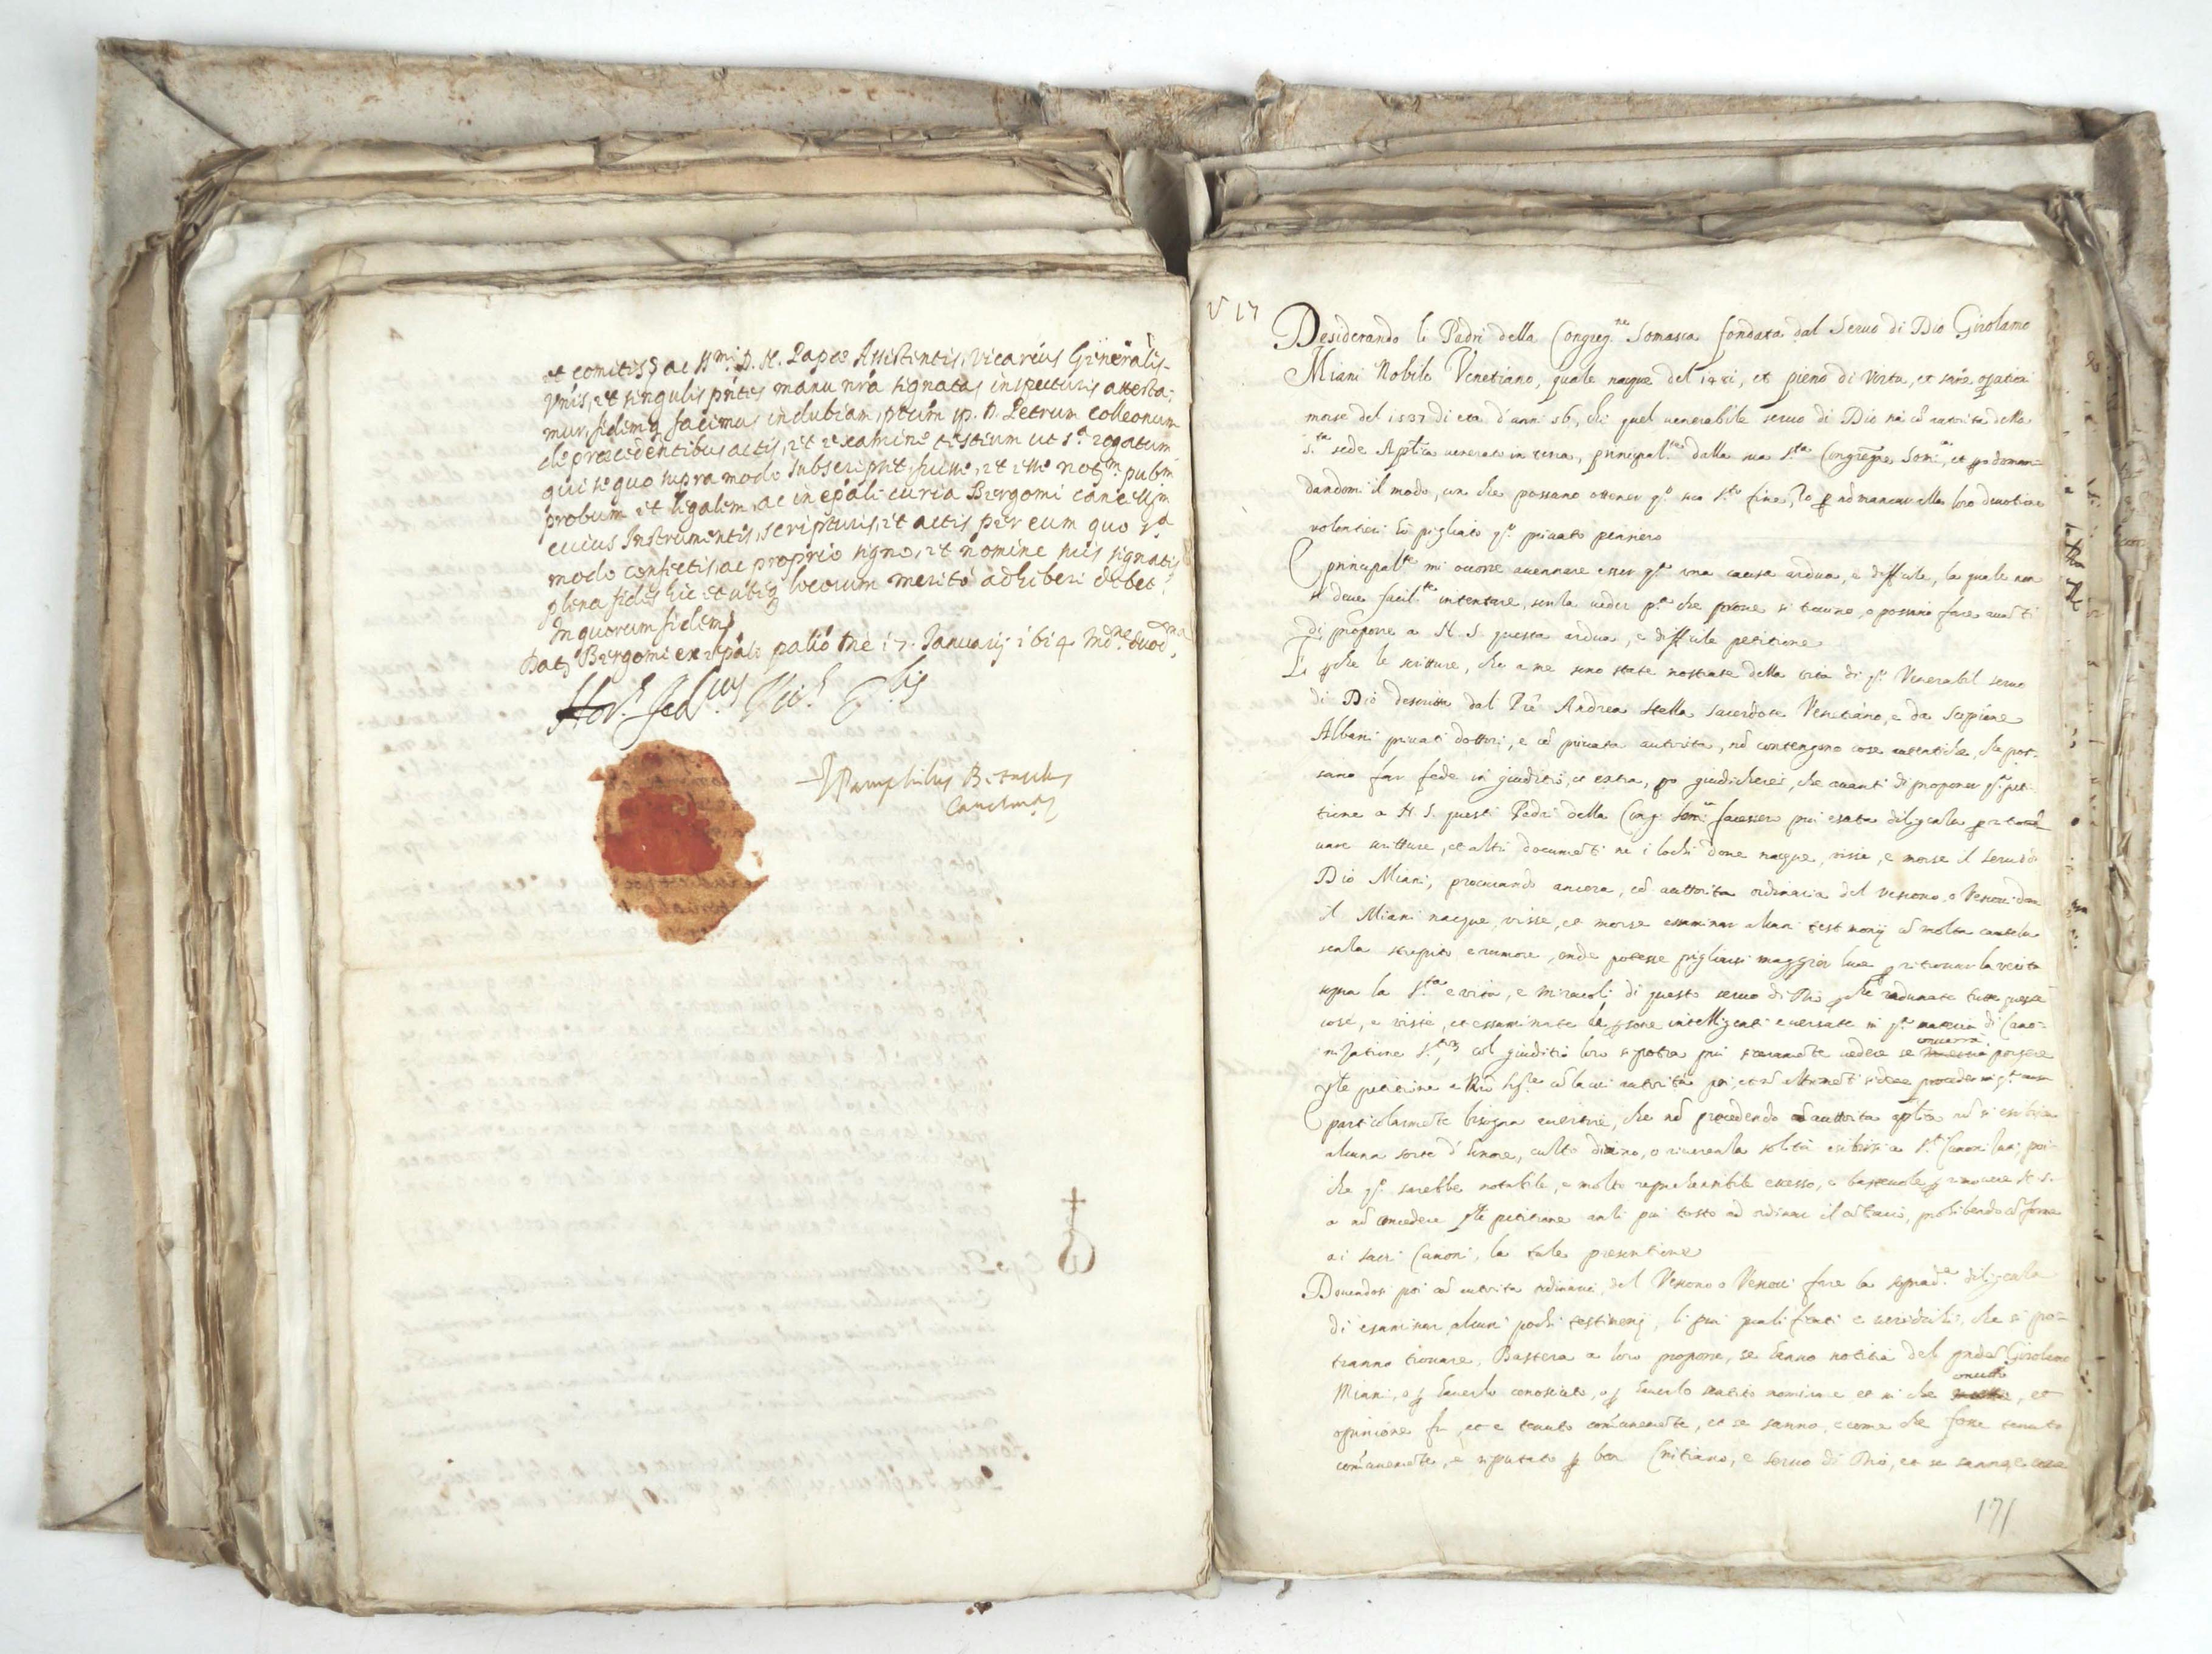 et comitis ac S.mi D. N. Papæ Assistentis, Vicarius Generalis.
Vnis, et singulis pñtes manu nrã signatas inspecturis attesta-
mur, fidemq facimus indubiam, ptum sp. D. Petrum Colleonum
de præcedentibus actis, et examine testium ut s.a rogatum
qui seque supra modo subscripsit, fuisse, et esse not.m pub.m
probum et legalem, ac in epãli curia Bergomi cancell.m
cuius Instrumentis, scripturis, et actis per eum quo s.a
modo confectis, ac proprio signo, et nomine suis signatis
plena fides hic et ubiq locorum meritó adhiberi debet.
In quorum fidem
Dat Bergomi ex epãli palió die 17. Januarij 1614 Ind.ne duod.ma
Pamphilus
V 17
Desiderando li Padri della Congreg.ne Somasca fondata dal Seruo di Dio Girolamo
Miani Nobile Venetiano, quale nacque del 1481, et pieno di virtu, et
morse del 1537 di eta d'anni 56, che quel venerabile seruo di Dio sia cõ autorita della
S.ta sede Aplica venerato in terra, principal.te dalla sua S.ta Congregne Som.a, et
dandomi il modo, con che possano ottener q.o suo s.to fine, Io p nõ mancar alla loro deuotione
volentieri hò pigliato q.o privato pensiero
E principal.te mi occorre accennare esser q.a una causa ardua, e difficile, la quale non
si deve facil.te intentare, senza veder p.a che proue si trouino, o possano fare auãti
di proporre a N. S. questa ardua, e difficile petitione
E pche le scritture, che a me sono state mostrate della vita di q.o Venerabil seruo
di Dio descritta dal Prẽ Andrea Stella sacerdote Venetiano, e da Scipione
Albani priuati dottori, e cõ priuata autorita, nõ contengono cose autentiche, che pos-
sano far fede in giuditio, et extra, po giudicherei, che auanti di proponer q.a peti-
tione a N. S. questi Padri della Cong. Som.a facessero piu esata diligenza p
uare scritture, et altri documẽti ne i lochi doue nacque, visse, e morse il seruo di
Dio Miani, procurando ancora, cõ auttorita ordinaria del vescouo, o Vescoui doue
il Miani nacque, visse, et morse essaminar alcuni testimonij cõ molta cautela
senza strepito e rumore, onde potesse pigliarsi maggior luce p ritrouar la verita
sopra la s.ta vita, e miracoli di questo seruo di Dio, pchè radunate tutte queste
cose, e viste, et essaminate da psone intelligenti e versate in q.a materia di Cano-
nizatione col giuditio loro si potra piu sicuramẽte vedere se conuerrà porgere
particolarmẽte bisogna auertire, che nõ procedendo cõ auttorita aplica nõ si
alcuna sorte d'honore, culto diuino, o riuerenza solita esibirsi a S.ti Canonizati, poi-
che q.o sarebbe notabile, e molto reprehensibile eccesso, e basteuole p rimouere N. S.
a nõ concedere petitione anzi piu tosto ad ordinare il cõtrario, prohibendo cõforme
ai sacri Canoni, la tale presentione
Douendosi poi cõ autorita ordinaria del Vescouo o Vescoui fare la soprad.a diligenza
di esaminar alcuni pochi testimonij, li piu qualificati e veridichi, che si po-
tranno trouare, Bastera a loro proporre, se hanno notitia del Girolamo
Miani, o p hauerlo conosciuto, o p hauerlo sentito nominare et in che concetto, et
opinione fu, et e tenuto comunemẽte, et se sanno, e come che fosse tenuto
comunemẽte, e riputato p bon Cristiano, e seruo di Dio, et se sanno, e
171